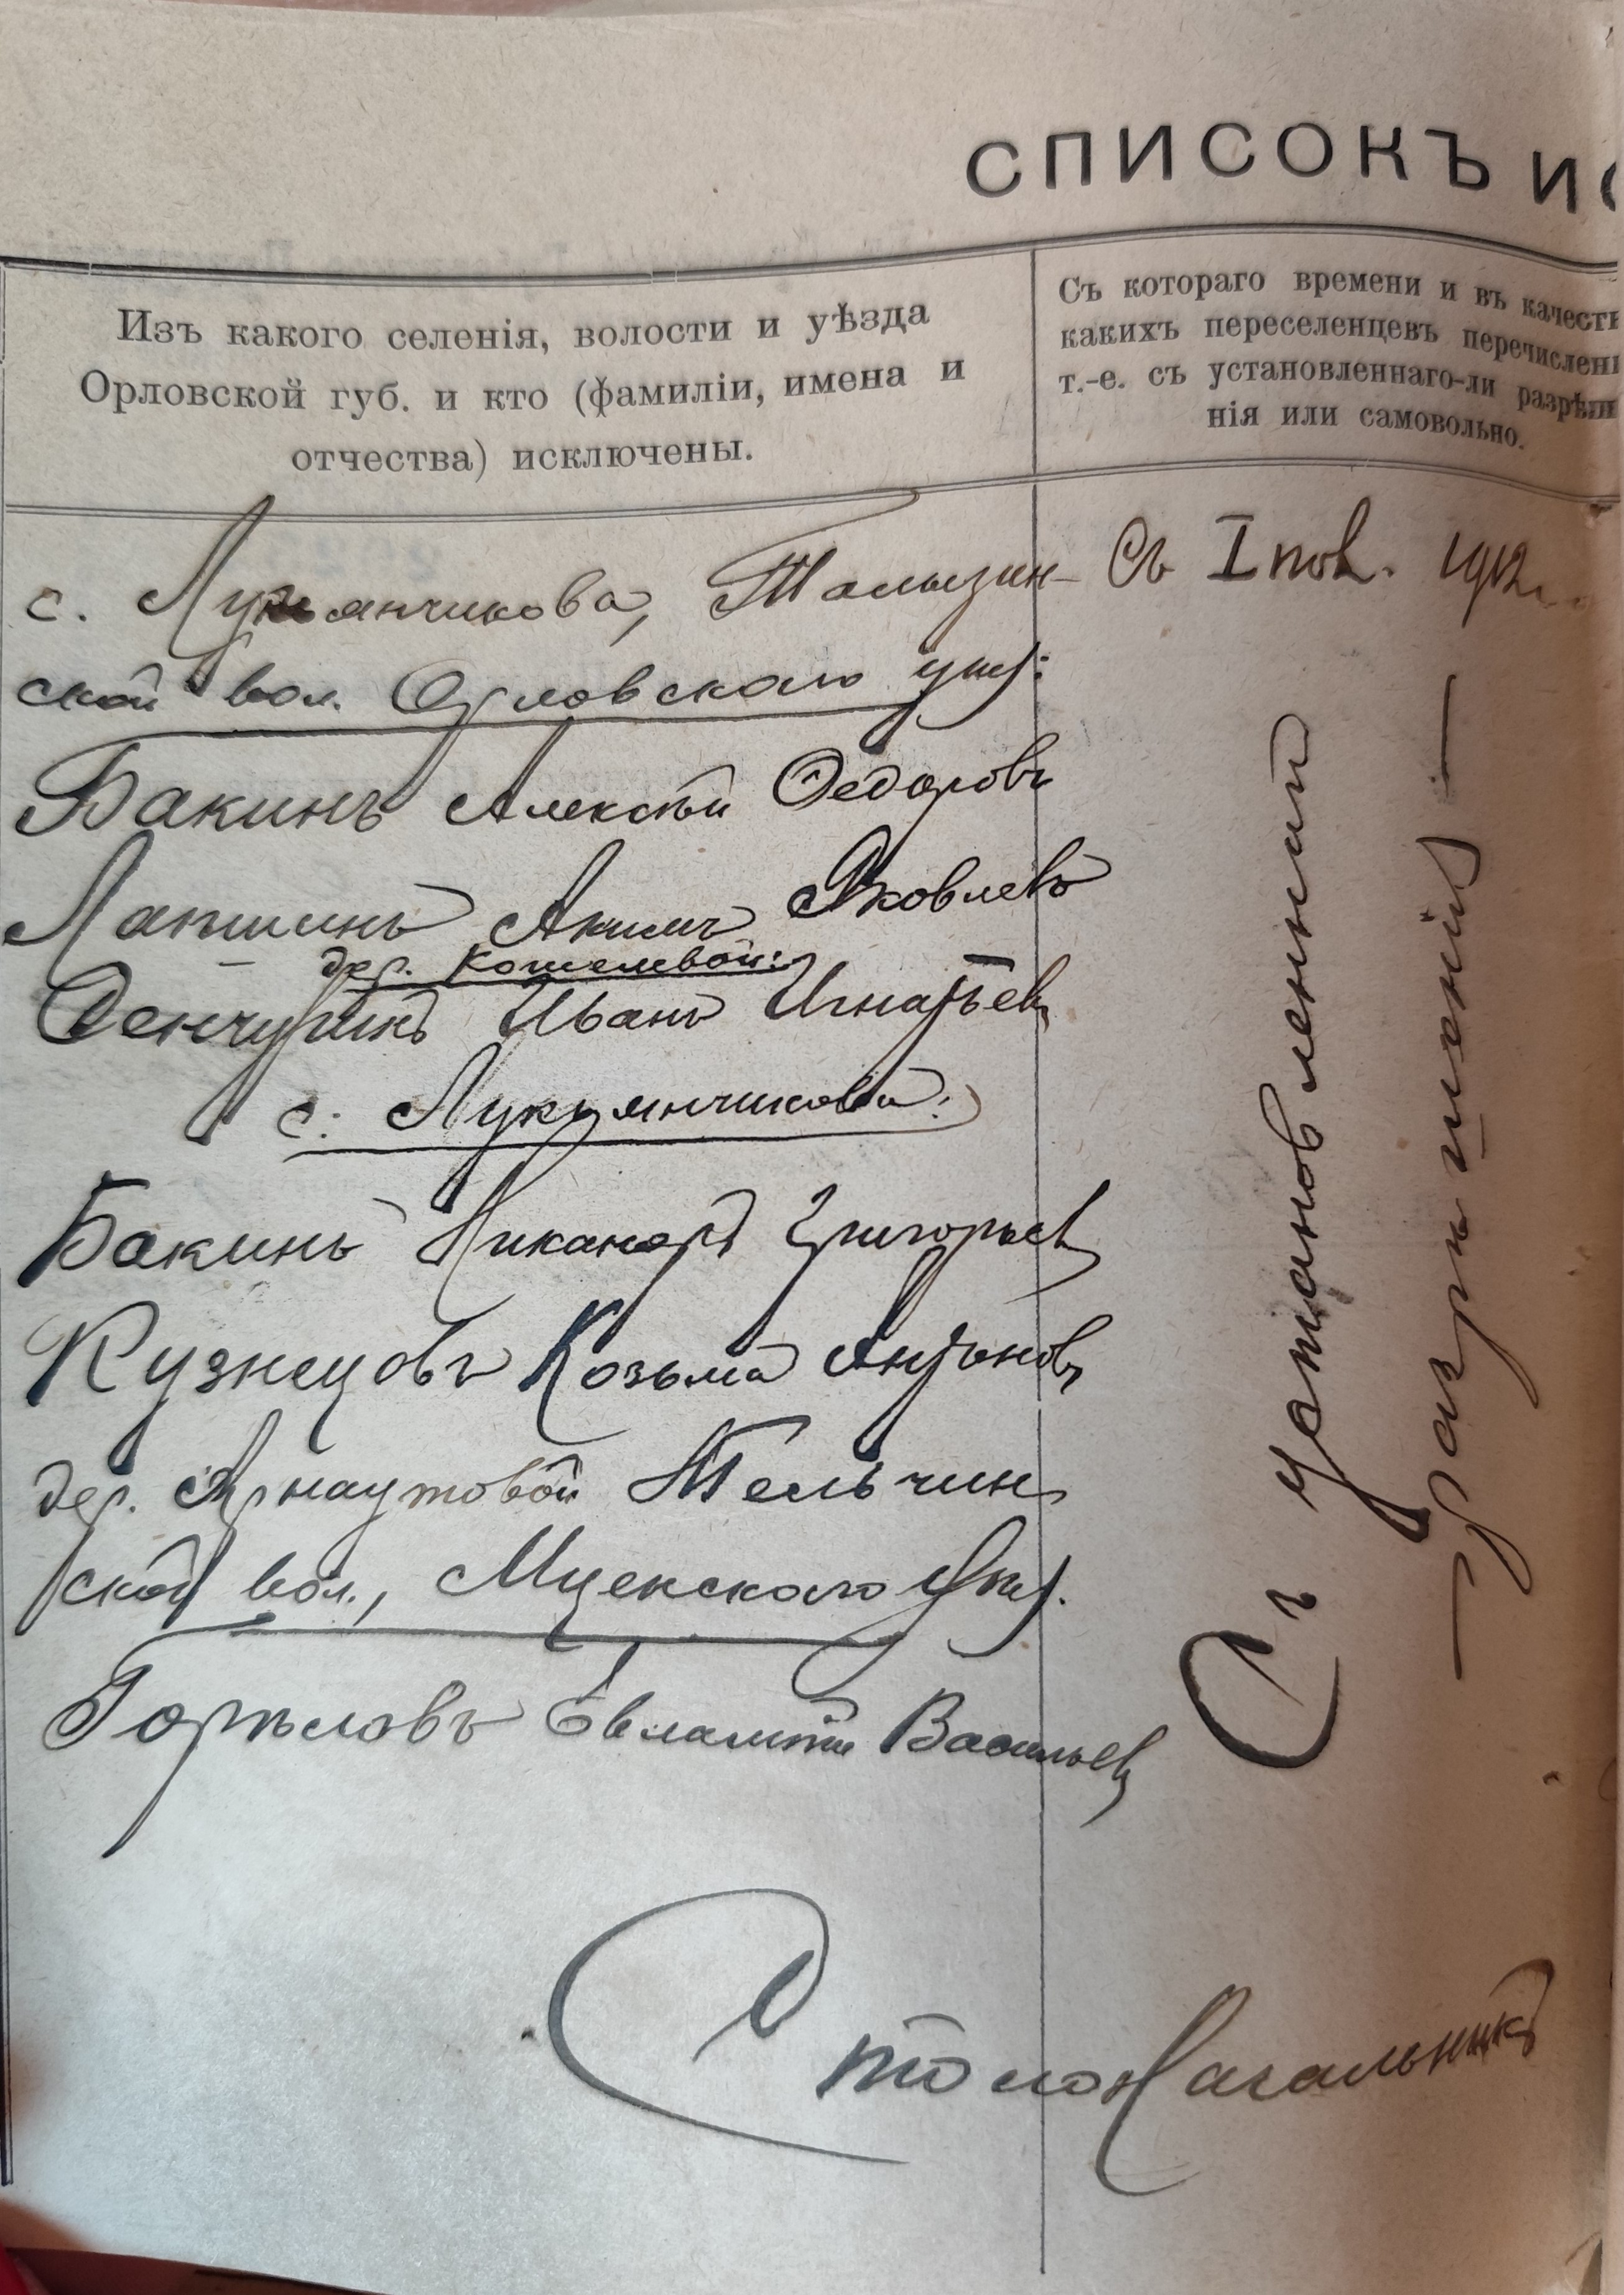 СПИСОКЪ ИС
Изъ какого селенія, волости и уѣзда
Орловской губ. и кто (фамиліи, имена и
отчества) исключены.
Съ котораго времени и въ качеств
какихъ переселенцевъ перечислен
т.-е. съ установленнаго-ли разрѣше
нія или самовольно.
с. Лукьянчикова, Талызин-
ской вол. Орловскаго уѣз:
Бакинъ Алексѣй Ѳедоровъ
Лапшинъ Акимъ Яковлевъ
дер. Кошелевой:
Сенчукинъ Иванъ Игнатьев
с. Лукьянчикова:
Бакинъ Никаноръ Григорьев
Кузнецовъ Козьма Антонов
дер. Арнаутовой Тельчин
ской вол., Мценскаго уѣз.
Горѣловъ Евлампій Васильев
Съ I пол. 1912 г.
Съ установленнаго
— разрѣшенія —
Столоначальникъ